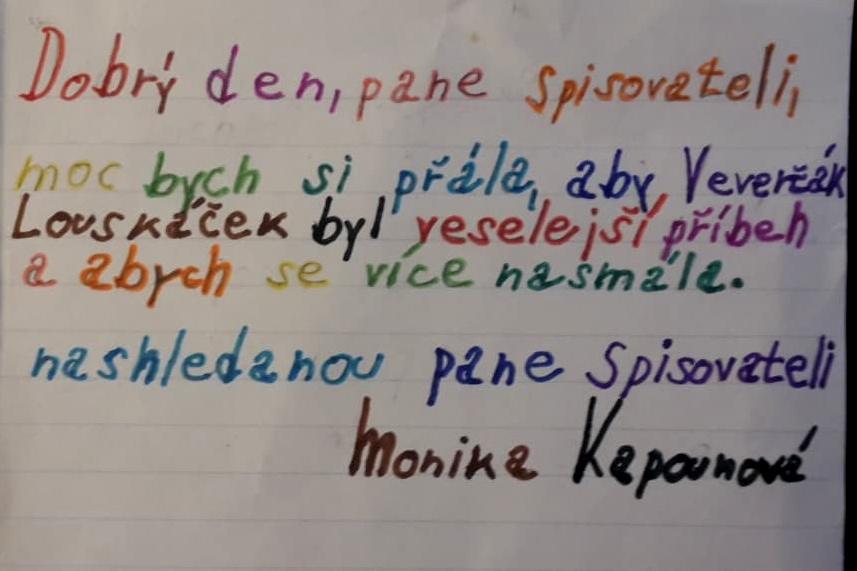 Dobrý den, pane spisovateli,
moc bych si přála, aby Veverčák
Louskáček byl veselejší příbeh
a abych se více nasmála.
nashledanou pane Spisovateli
Monika Kapounová